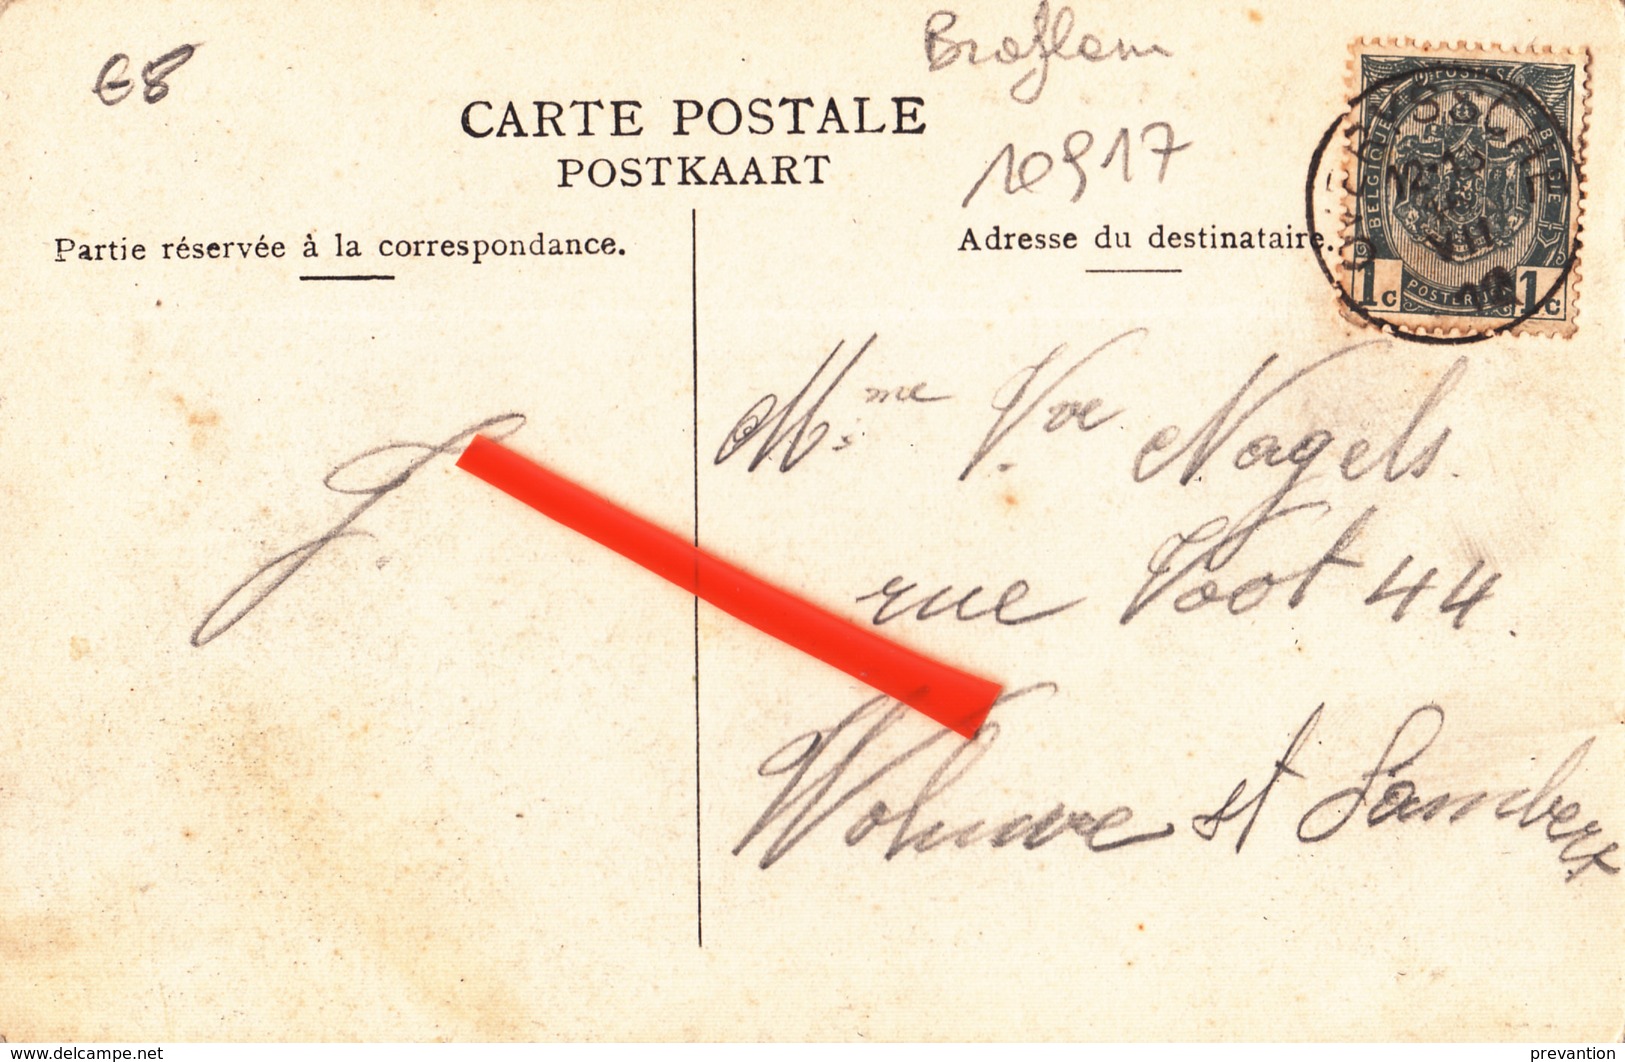 G8
Braflam
10917
CARTE POSTALE
POSTKAART
Partie réservée à la correspondance.
Adresse du destinataire.
POSTES
BELGIQUE BELGIE
POSTERIJEN
1c 1c
J.
Mme Vve Nagels.
rue Voot 44.
Woluwe st Lambert
www.delcampe.net
prevantion